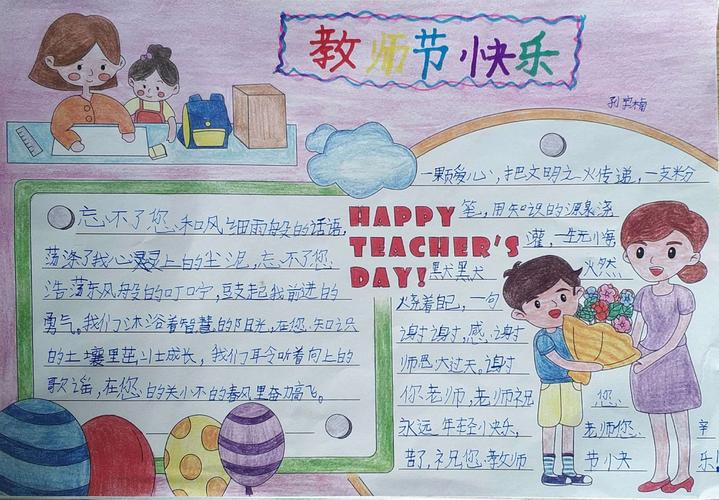 教师节快乐
忘不了您和风细雨般的话语,
荡涤了我心灵上的尘泥,忘不了您
浩荡东风般的叮咛,鼓起我前进的
勇气。我们沐浴着智慧的阳光,在您知识
的土壤里茁壮成长,我们聆听着向上的
歌谣,在您的关怀的春风里奋力高飞。
HAPPY
TEACHER'S
DAY!
一颗爱心,把文明之火传递,一支粉
笔,用知识的源泉浇
灌,一生无悔
默默 燃
烧着自己,一句
谢谢,感谢
师恩大过天。谢谢
你老师,老师祝 您
永远年轻快乐, 老师您 辛
苦了,祝您教师 节快 乐!